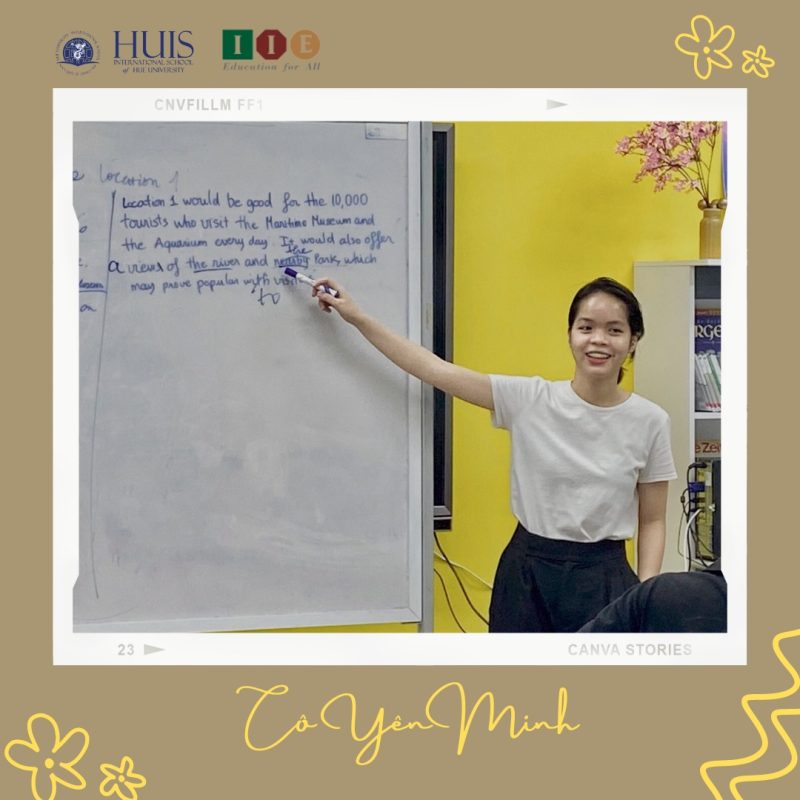 HUIS
INTERNATIONAL SCHOOL
of HUE UNIVERSITY
IIE
Education for All
CNVFILLM FF1
Location 1
Location 1 would be good for the 10,000
tourists who visit the Maritime Museum and
the Aquarium every day. It would also offer
the
a views of the river and nearby Park, which
may prove popular with
to
on
RGE
23
CANVA STORIES
Cô Yên Minh